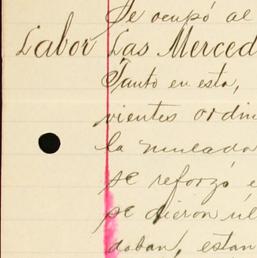 Se ocupó al
Labor Las Merced
Tanto en esta,
vientes ordin
la
se reforzó e
se dieron úl
daban, estan